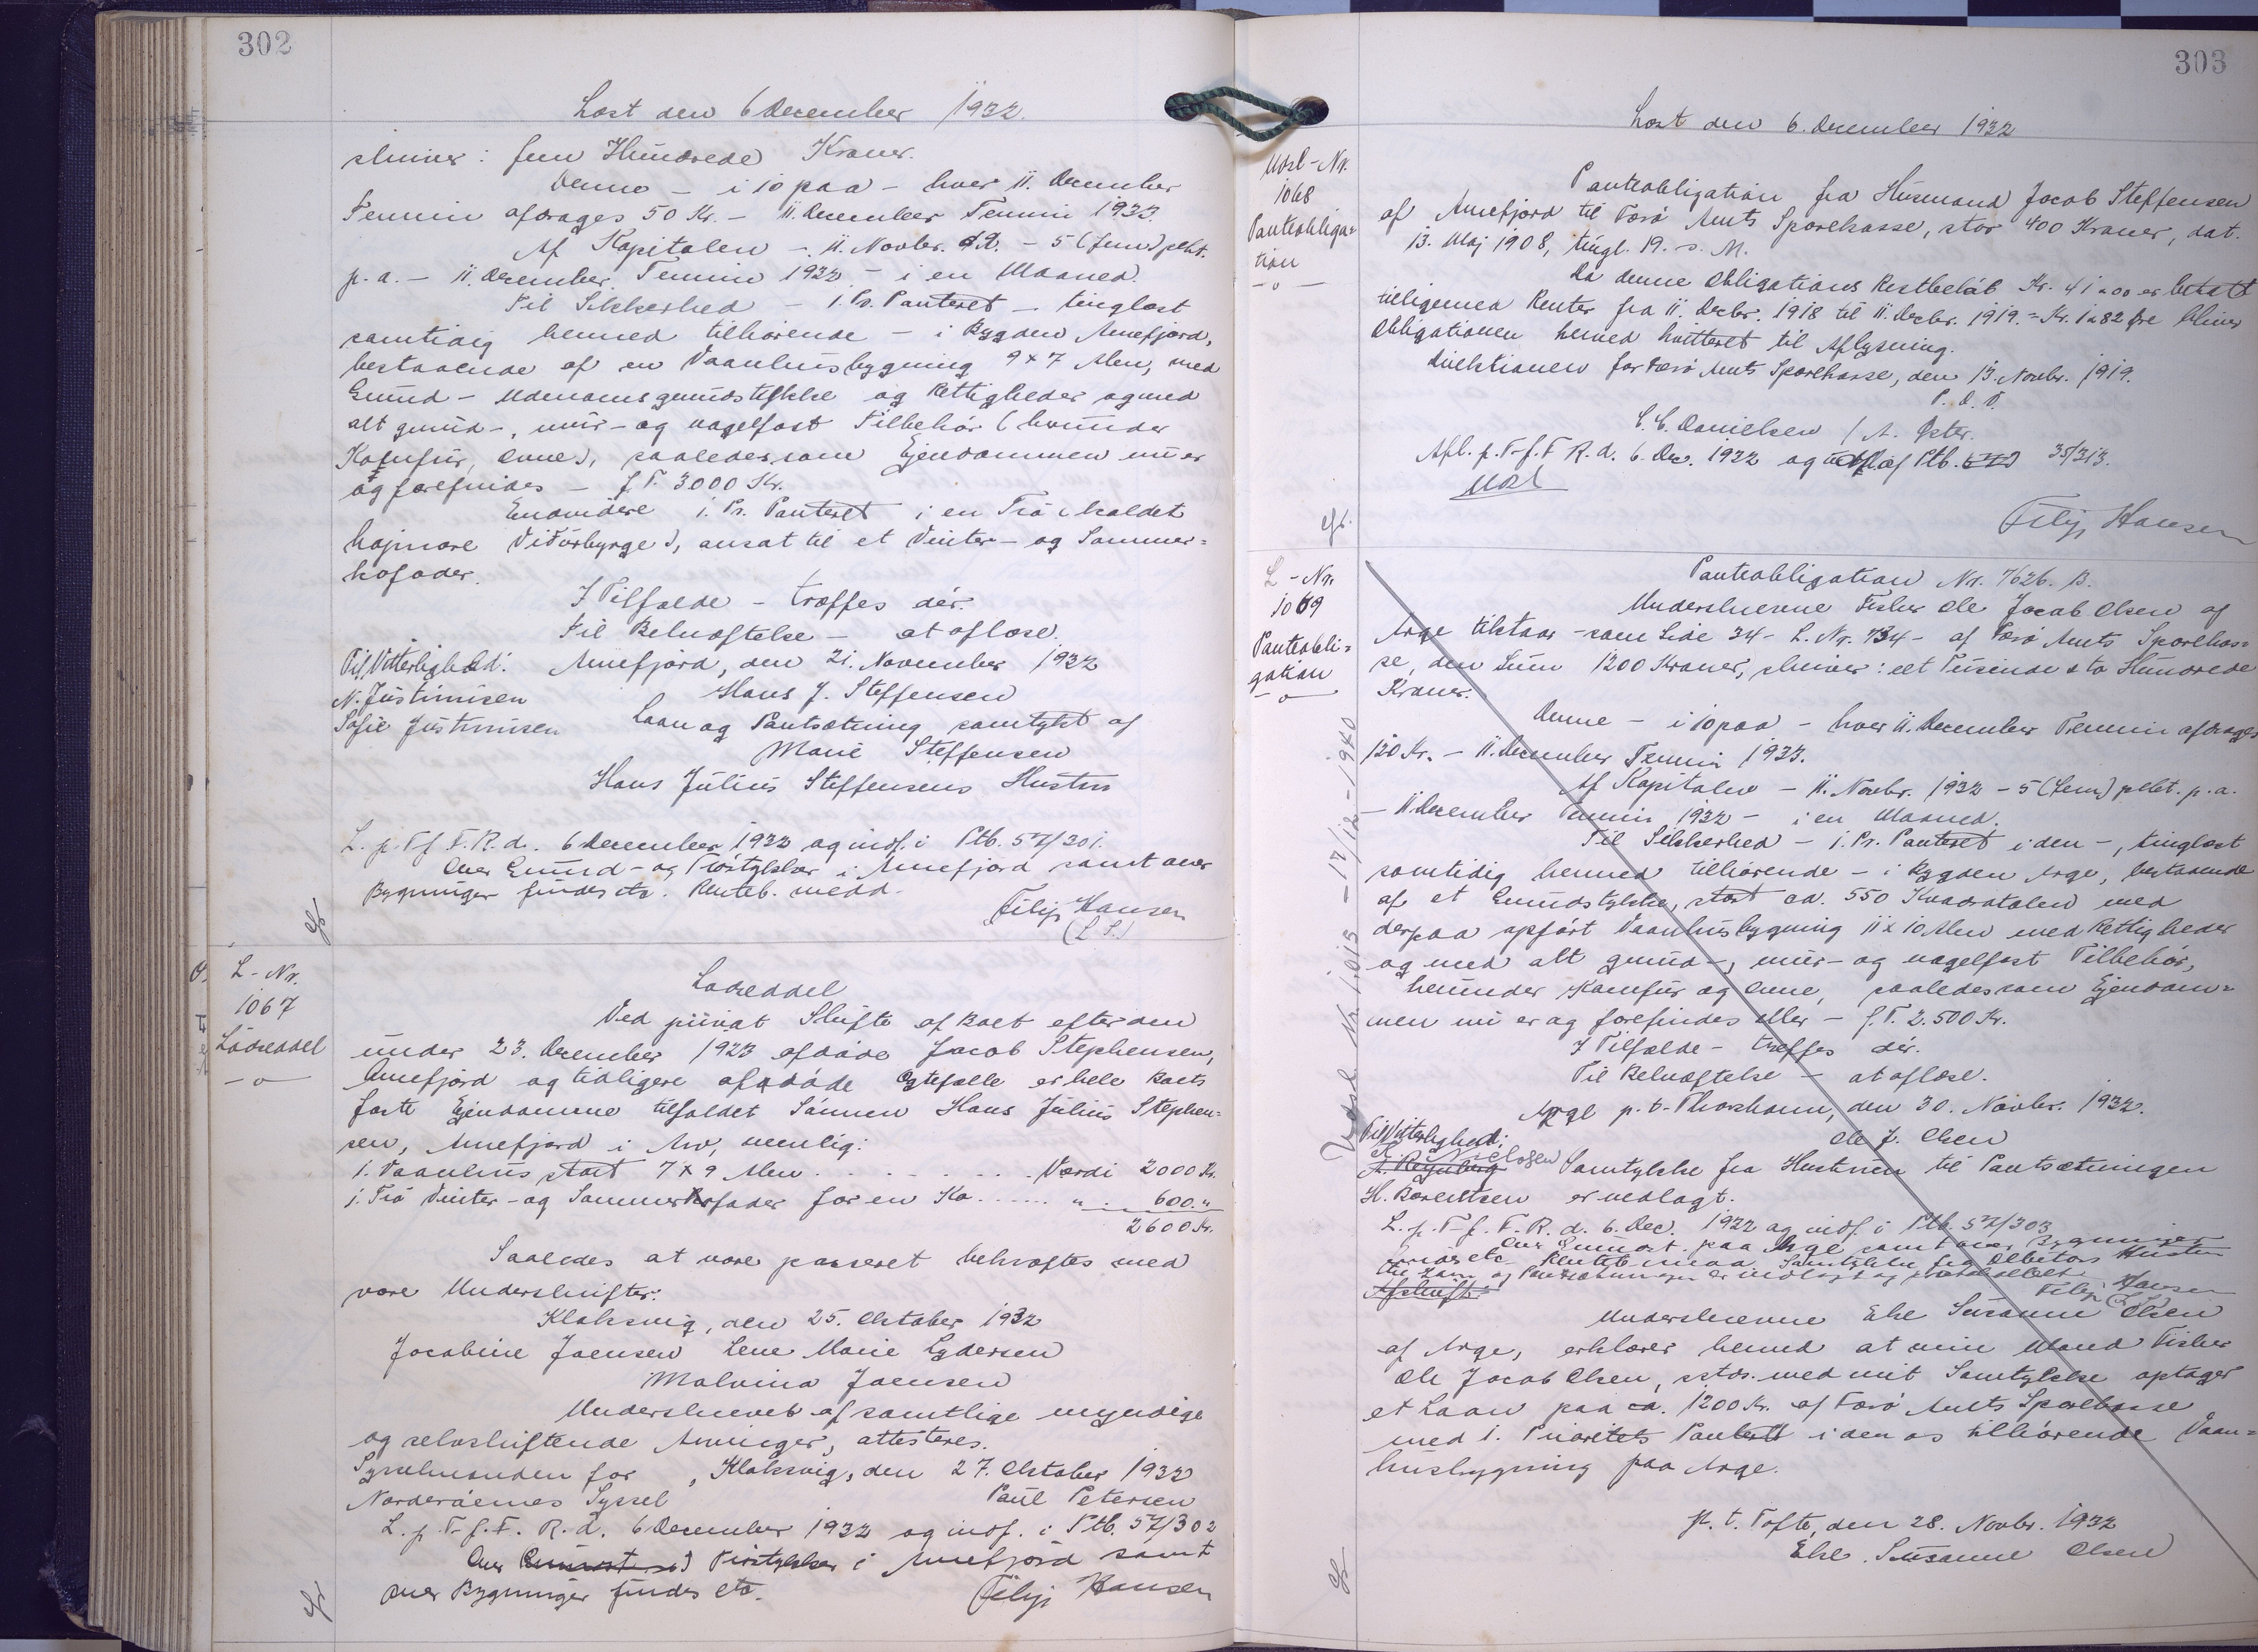 302
Læst den 6 December 1932.
skriver: fem Hundrede Kroner.
Denne - i 10 paa - hver 11. December
Termin afdrages 50 Kr. - 11. December Termin 1933.
Af Kapitalen - 11. Novbr. d.A. - 5 (fem) pCt.
p.a. - 11. December Termin 1932 - i en Maaned.
Til Sikkerhed - 1. Pr. Panteret - tinglæst
samtidig hermed tilhørende - i Bygden Arnefjord,
bestaaende af en Vaanhusbygning 9 x 7 Alen, med
Grund - Udenomsgrundstykke og Rettigheder og med
alt grund-, mur- og nagelfast Tilbehør (herunder
Komfur, Ovne), saaledes som Ejendommen nu er
og forefindes - f.T. 3000 Kr.
Endvidere 1. Pr. Panteret i en Trø (kaldet
højmore Viðurbyrge), ansat til et Vinter- og Sommer=
kofoder.
I Tilfælde - træffes dér.
Til Bekræftelse - at aflæse.
Til Vitterlighed: Arnefjord, den 21. November 1932
N. Justinusen Hans J. Steffensen
Sofie Justinusen Laan og Pantsætning samtykt af
Marie Steffensen
Hans Julius Steffensens Hustru
L. p. T. f. F. R. d. 6 December 1932 og indf. i Ptb. 57/301.
Over Grund- og Trøstykker i Arnefjord samt over
Bygninger findes etc. Renteb. medd.
Filip Hansen
(L.S.)
L - Nr.
1067
Lodseddel
Lodseddel
Ved privat Skifte af Boet efter den
under 23. December 1923 afdøde Jacob Stephensen,
Arnefjord og tidligere afdøde Ægtefælle er hele Boets
faste Ejendomme tilfaldet Sønnen Hans Julius Stephen=
sen, Arnefjord i Arv, nemlig:
1. Vaanhus stort 7 x 9 Alen . . . . . . . Værdi 2000 Kr.
1. Trø Vinter- og Sommerkofoder for en Ko . . . . . " 600. "
2600 Kr.
Saaledes at være passeret bekræftes med
vore Underskrifter:
Klaksvig, den 25. Oktober 1932
Jacobine Joensen Lene Marie Lydersen
Malvina Joensen
Underskrevet af samtlige myndige
og selvskiftende Arvinger, attesteres.
Sysselmanden for , Klaksvig, den 27. Oktober 1932
Norderøernes Syssel Paul Petersen
L. p. T. f. F. R. d. 6 December 1932 og indf. i Ptb. 57/302
Over Trøstykker i Arnefjord samt
over Bygninger findes etc. Filip Hansen
303
Læst den 6. December 1932
Udsl - Nr.
1068
Panteobliga=
tion
Panteobligation fra Husmand Jacob Steffensen
af Arnefjord til Færø Amts Sparekasse, stor 400 Kroner, dat.
13. Maj 1908, tingl. 19. s. M.
Da denne Obligations Restbeløb Kr. 41.00 er betalt
tilligemed Renter fra 11. Decbr. 1918 til 11. Decbr. 1919 = Kr. 1.82 Øre bliver
Obligationen herved kvitteret til Aflysning.
Direktionen for Færø Amts Sparekasse, den 13. Novbr. 1919.
P. D. V.
C. C. Danielsen / A. Øster.
Afl. p. T. f. F. R. d. 6. Dec. 1932 og udsl. af Ptb. 35/313.
Udsl
Filip Hansen
L - Nr.
1069
Panteobli=
gation
Panteobligation Nr. 7626. B.
Underskrevne Fisker Ole Jacob Olsen af
Arge tilstaar - som Side 34 - L. Nr. 734 - af Færø Amts Sparekas=
se, den Sum 1200 Kroner, skriver: eet Tusinde sto Hundrede
Kroner.
Denne - i 10 paa - hver 11. December Termin afdrages
120 Kr. - 11. December Termin 1933.
Af Kapitalen - 11. Novbr. 1932 - 5 (fem) pCt. p.a.
- 11 December Termin 1932 - i en Maaned.
Til Sikkerhed - 1. Pr. Panteret i den -, tinglæst
samtidig hermed tilhørende - i Bygden Arge, bestaaende
af et Grundstykke, stort ca. 550 Kvadratalen med
derpaa opført Vaanhusbygning 11 x 10 Alen med Rettigheder
og med alt grund-, mur- og nagelfast Tilbehør,
herunder Komfur og Ovne, saaledes som Ejendom=
men nu er og forefindes eller - f.T. 2.500 Kr.
I Tilfælde - træffes dér.
Til Bekræftelse - at aflæse.
Arge p. t. Thorshavn, den 30. Novbr. 1932.
Til Vitterlighed: Ole J. Olsen
Nielsen Samtykke fra Hustruen til Pantsætningen
H. Berentsen er vedlagt.
L. p. T. f. F. R. d. 6. Dec. 1932 og indf. i Ptb. 57/303
Over Grundst. paa Arge samt over Bygninger
findes etc. Renteb. medd. Samtykke fra Debitors Hustru
til Laan og Pantsætningen er vedlagt og protokolleret
Filip Hansen
Afskrift.
Underskrevne Else Susanne Olsen
af Arge, erklærer herved at min Mand Fisker
Ole Jacob Olsen, sstds. med mit Samtykke optager
et Laan paa ca. 1200 Kr. af Færø Amts Sparekasse
med 1. Prioritets Panteret i den os tilhørende Vaan=
husbygning paa Arge.
p. t. Tofte, den 28. Novbr. 1932
Else Susanne Olsen
Udsl. Nr. 1015 - 17/12 - 1940